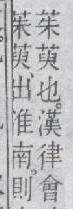 茱萸也漢律會
茱萸出淮南。則